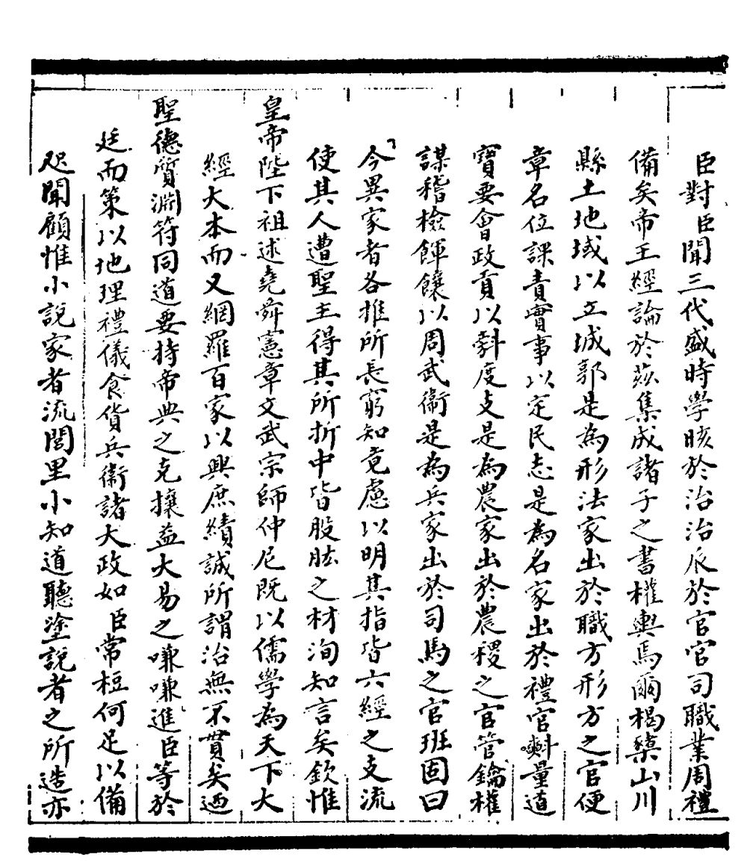 臣對臣聞三代盛時學晐於治治辰於官官司職業周禮
備矣帝王經論於茲集成諸子之書權輿焉爾楬櫫山川
縣土地域以立城郭是為形法家出於職方形方之官便
章名位課責實事以定民志是為名家出於禮官斠量道
寶要會政貢以斠度支是為農家出於農稷之官管鑰權
謀稽檢餫饟以周武衛是為兵家出於司馬之官班固曰
今異家者各推所長窮知竟慮以明其指皆六經之支流
使其人遭聖主得其所折中皆股肱之材洵知言矣欽惟
皇帝陛下祖述堯舜憲章文武宗師仲尼既以儒學為天下大
經大本而又網羅百家以興庶績誠所謂治無不貫矣迺
聖德質淵符同道要持帝典之克攘益大易之嗛嗛進臣等於
廷而策以地理禮儀食貨兵衛諸大政如臣常桓何足以備
咫聞顧惟小說家者流閭里小知道聽塗說者之所造亦